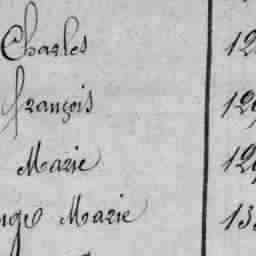 Charles 12
françois 12
Marie 12
Marie 13